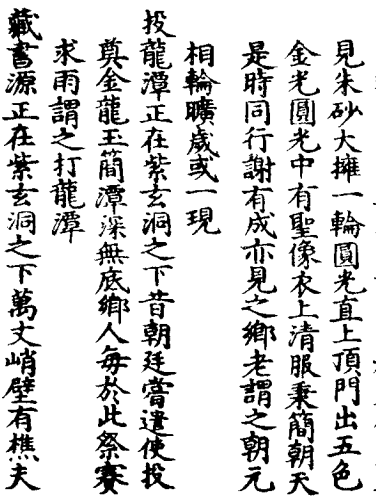 見朱砂大擁一輪圓光直上頂門出五色
金光圓光中有聖像衣上清服秉簡朝天
是時同行謝有成亦見之鄉老謂之朝元
相輪曠歲或一現
投龍潭正在紫玄洞之下昔朝廷嘗遣使投
奠金龍玉簡潭深無底鄉人每於此祭賽
求雨謂之打龍潭
藏書源正在紫玄洞之下萬丈峭壁有樵夫